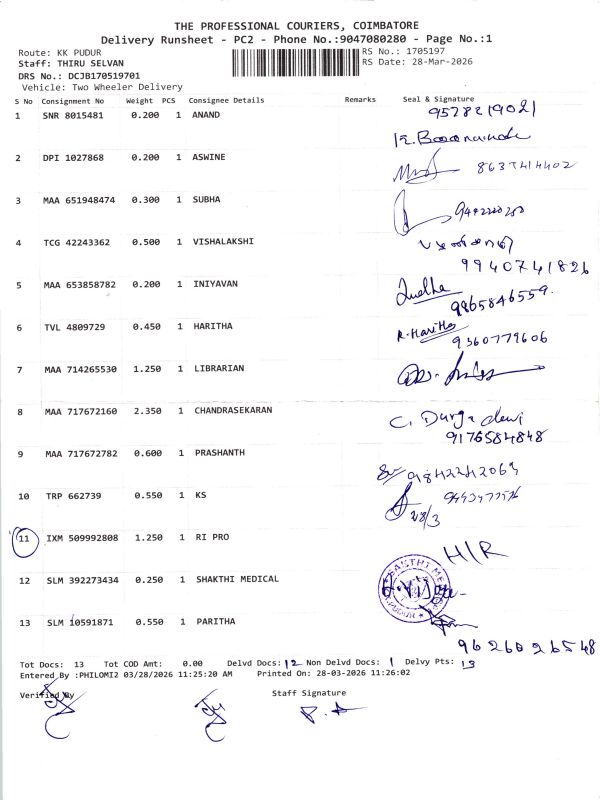 THE PROFESSIONAL COURIERS, COIMBATORE
Delivery Runsheet - PC2 - Phone No.:9047080280 - Page No.:1
Route: KK PUDUR
RS No.: 1705197
Staff: THIRU SELVAN
RS Date: 28-Mar-2026
DRS No.: DCJB170519701
Vehicle: Two Wheeler Delivery
S No Consignment No Weight PCS Consignee Details Remarks Seal & Signature
1 SNR 8015481 0.200 1 ANAND
2 DPI 1027868 0.200 1 ASWINE
3 MAA 651948474 0.300 1 SUBHA
4 TCG 42243362 0.500 1 VISHALAKSHI
9940741826
5 MAA 653858782 0.200 1 INIYAVAN
9865846559.
6 TVL 4809729 0.450 1 HARITHA R.Haritha
9360779606
7 MAA 714265530 1.250 1 LIBRARIAN
8 MAA 717672160 2.350 1 CHANDRASEKARAN C. Durga devi
9176584848
9 MAA 717672782 0.600 1 PRASHANTH
10 TRP 662739 0.550 1 KS
28/3
11 IXM 509992808 1.250 1 RI PRO H/R
12 SLM 392273434 0.250 1 SHAKTHI MEDICAL
13 SLM 10591871 0.550 1 PARITHA
9626026548
Tot Docs: 13 Tot COD Amt: 0.00 Delvd Docs: 12 Non Delvd Docs: 1 Delvy Pts: 13
Entered By :PHILOMI2 03/28/2026 11:25:20 AM Printed On: 28-03-2026 11:26:02
Verified By Staff Signature